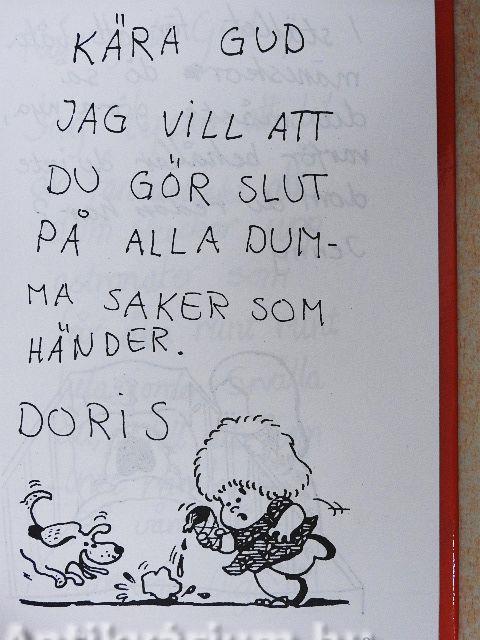 KÄRA GUD
JAG VILL ATT
DU GÖR SLUT
PÅ ALLA DUM-
MA SAKER SOM
HÄNDER.
DORIS
Antikvárium.hu